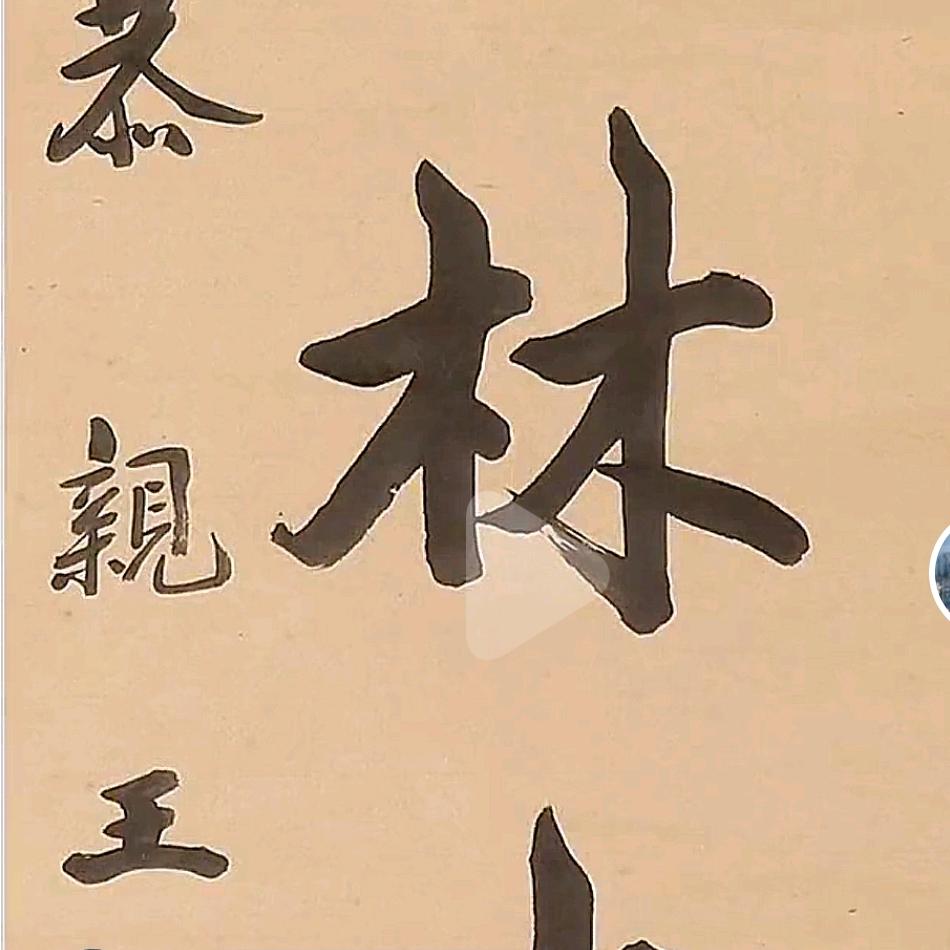 林
恭親王